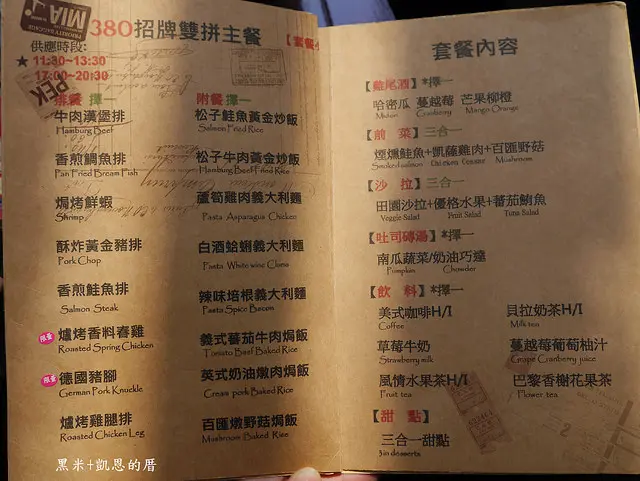 MIA
PRIORITY BAGGAGE
380招牌雙拼主餐
供應時段:
★ 11:30~13:30
17:00~20:30
PEK
排餐 擇一
牛肉漢堡排
Hamburg Beef
香煎鯛魚排
Pan Fried Bream Fish
焗烤鮮蝦
Shrimp
酥炸黃金豬排
Pork Chop
香煎鮭魚排
Salmon Steak
限量 爐烤香料春雞
Roasted Spring Chicken
限量 德國豬腳
German Pork Knuckle
爐烤雞腿排
Roasted Chicken Leg
附餐 擇一
松子鮭魚黃金炒飯
Salmon Fried Rice
松子牛肉黃金炒飯
Hamburg Beef Fried Rice
蘆筍雞肉義大利麵
Pasta Asparagus Chicken
白酒蛤蜊義大利麵
Pasta White wine Clams
辣味培根義大利麵
Pasta Spice Bacon
義式蕃茄牛肉焗飯
Tomato Beef Baked Rice
英式奶油燉肉焗飯
Cream pork Baked Rice
百匯燉野菇焗飯
Mushroom Baked Rice
套餐內容
【雞尾酒】*擇一
哈密瓜 蔓越莓 芒果柳橙
Melon Cranberry Mango Orange
【前 菜】三合一
煙燻鮭魚+凱薩雞肉+百匯野菇
Smoked salmon Chicken Caesar Mushroom
【沙 拉】三合一
田園沙拉+優格水果+蕃茄鮪魚
Veggie Salad Fruit Salad Tuna Salad
【吐司磚湯】*擇一
南瓜蔬菜/奶油巧達
Pumpkin Chowder
【飲 料】*擇一
美式咖啡H/I 貝拉奶茶H/I
Coffee Milk tea
草莓牛奶 蔓越莓葡萄柚汁
Strawberry milk Grape Cranberry juice
風情水果茶H/I 巴黎香榭花果茶
Fruit tea Flower tea
【甜 點】
三合一甜點
3in desserts
黑米+凱恩的厝